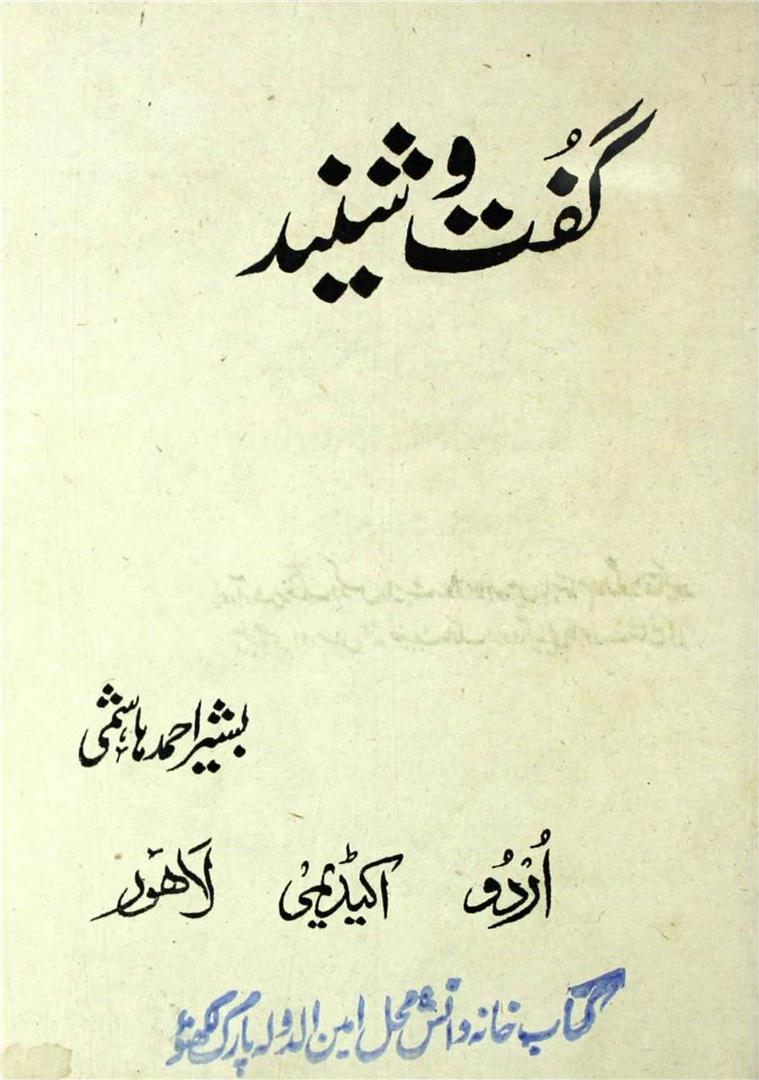 گُفت و شنید
بشیر احمد ہاشمی
اُردُو اکیڈیمی لاہور
کتاب خانہ دانش محل امین الدولہ پارک لکھنؤ